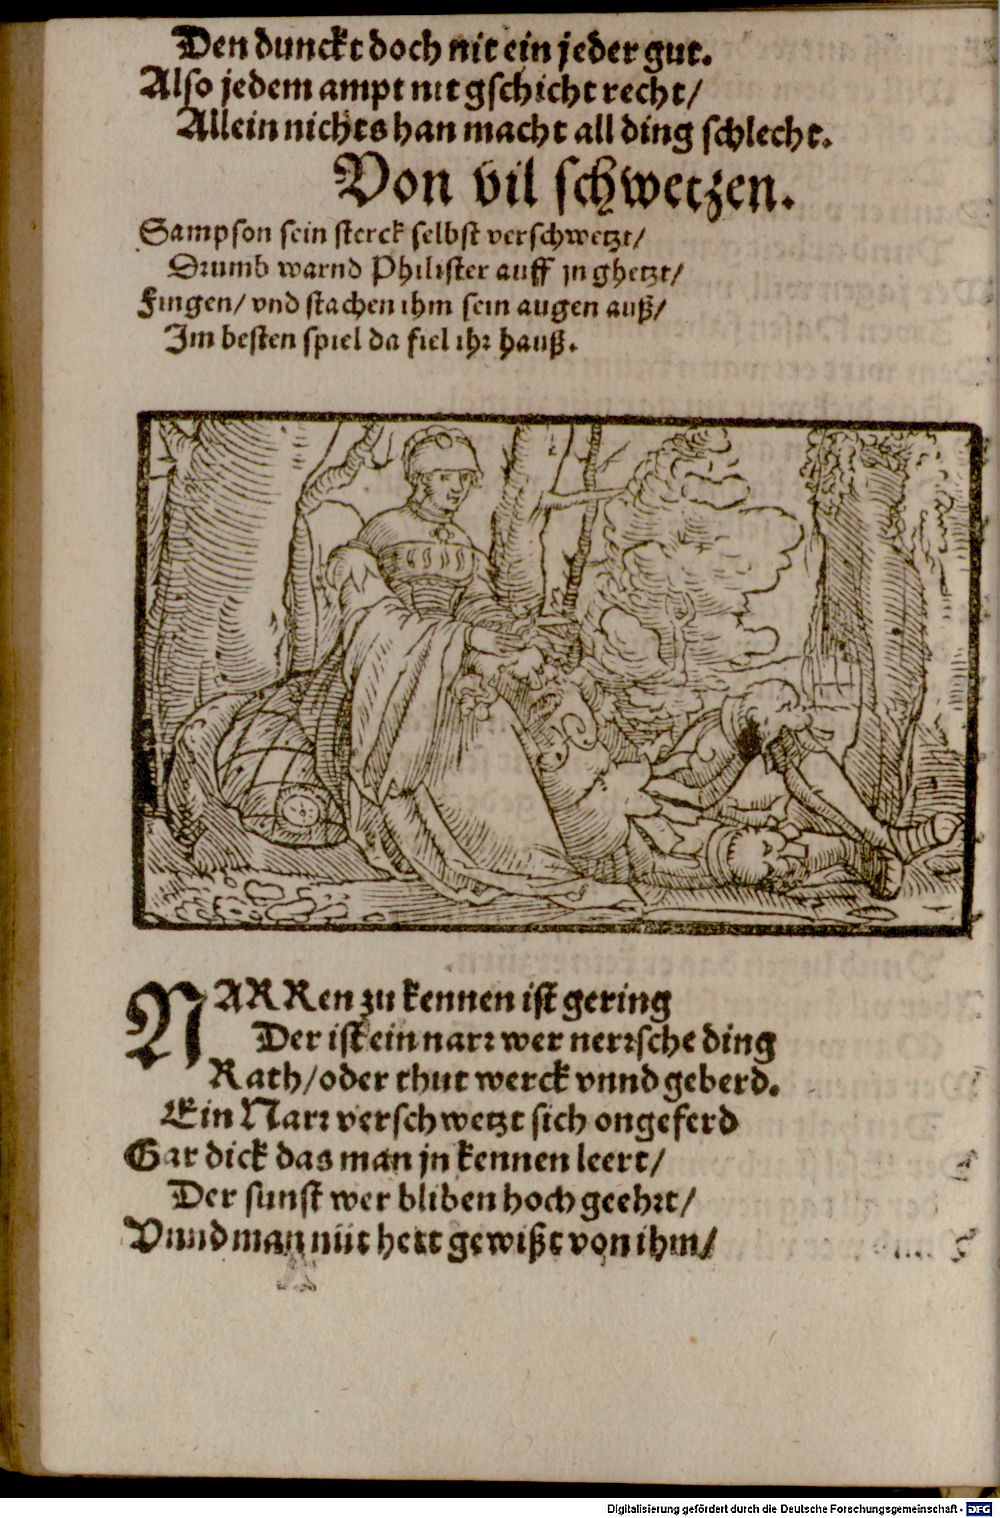 Den dunckt doch nit ein jeder gut.
Also jedem ampt nit gschicht recht/
Allein nichts han macht all ding schlecht.
Von vil schwetzen.
Sampson sein sterck selbst verschwetzt/
Drumb warnd Philister auff jn ghetzt/
Fingen/ vnd stachen ihm sein augen auß/
Im besten spiel da fiel ihr hauß.
NARRen zu kennen ist gering
Der ist ein narr wer nerrsche ding
Rath/ oder thut werck vnnd geberd.
Ein Narr verschwetzt sich ongeferd
Gar dick das man jn kennen leert/
Der sunst wer bliben hoch geehrt/
Vnnd man nüt hett gewißt von ihm/
Digitalisierung gefördert durch die Deutsche Forschungsgemeinschaft - DFG